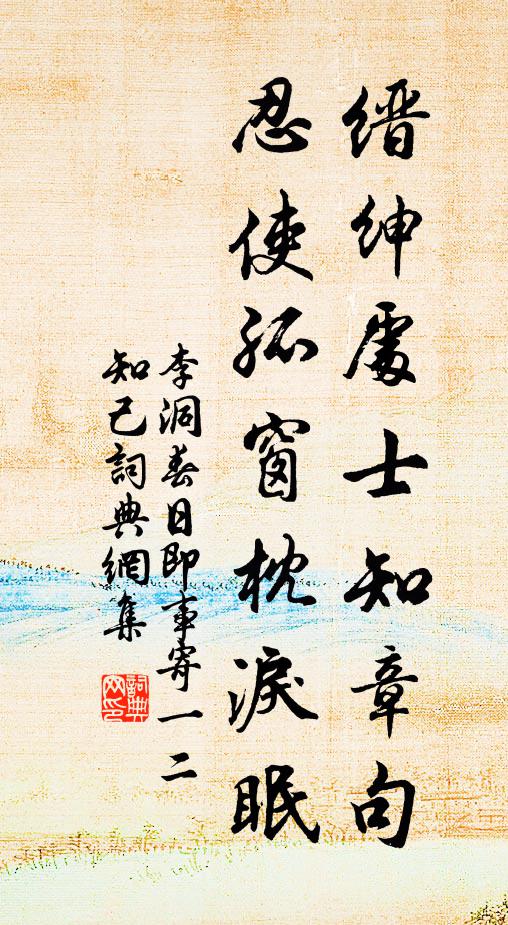 缙紳處士知章句
忍使孤窗枕淚眠
李洞春日即事寄一二
知己詞典網集
詞典
网印